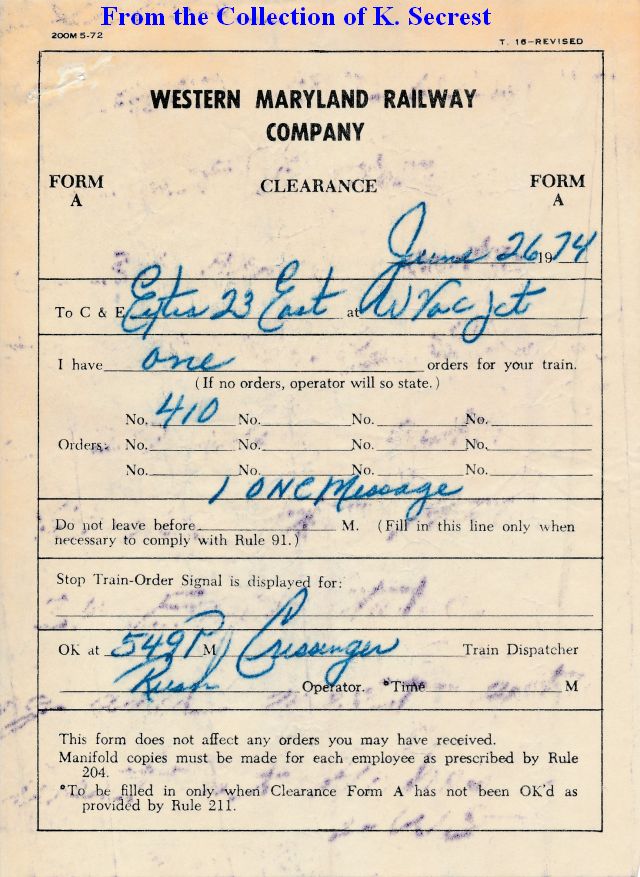 From the Collection of K. Secrest
200M 5-72
T. 16—REVISED
WESTERN MARYLAND RAILWAY
COMPANY
FORM
A
CLEARANCE
FORM
A
June 26 1974
To C & E Extra 23 East at W Vac Jct
I have one orders for your train.
(If no orders, operator will so state.)
No. 410 No. No. No.
Orders: No. No. No. No.
No. No. No. No.
1 ONC Message
Do not leave before M. (Fill in this line only when
necessary to comply with Rule 91.)
Stop Train-Order Signal is displayed for:
OK at 549 P M Train Dispatcher
Operator. *Time M
This form does not affect any orders you may have received.
Manifold copies must be made for each employee as prescribed by Rule
204.
*To be filled in only when Clearance Form A has not been OK'd as
provided by Rule 211.